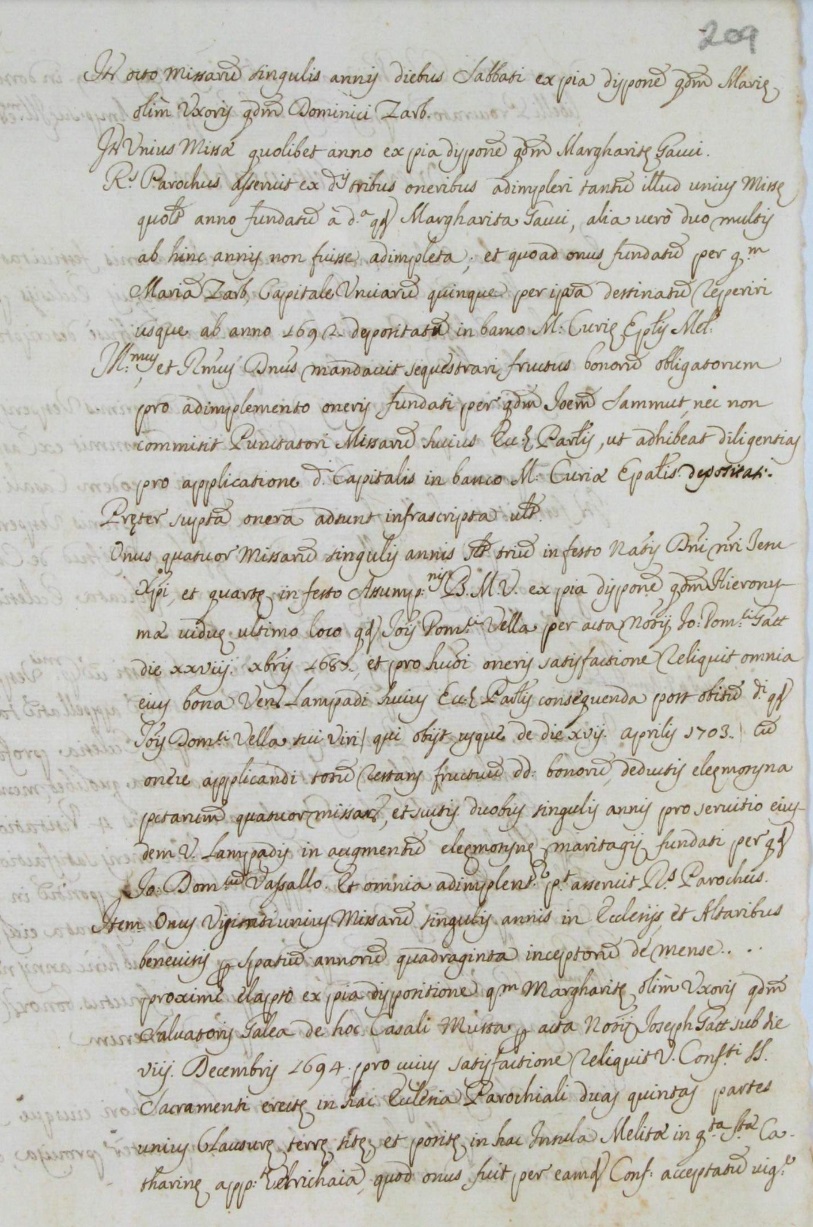 209
Itē octo Missarū singulis annis diebus Sabbati ex pia dispone qdm Marie
olim Uxoris qdm Dominici Zarb.
Itē Unius Missæ quolibet anno ex pia dispone qdm Margharite Gauci.
Rs Parochus asseruit ex ds tribus oneribus adimpleri tantū illud unius Misse
quolt anno fundatū a da qd Margharita Gauci, alia verò duo multis
ab hinc annis non fuisse adimpleta; et quoad onus fundatū per qm
Mariā Zarb, Capitale Unciarū quinque per ipsā destinatū reperiri
usque ab anno 1692 depositatū in banco M. Curie Eplis Mel.
Illmus et Rmus Dnus mandavit sequestrari fructus bonorū obligatorum
pro adimplemento oneris fundati per qdm Joem Sammut, nec non
commisit Punctatori Missarū huius Eccl Parlis, ut adhibeat diligentias
pro applicatione d. Capitalis in banco M. Curiæ Epalis depositati.
Pręter suptā onera adsunt infrascripta ult.
Onus quatuor Missarū singulis annis triū in festo Natis Dni nri Jesu
Xpi, et quarte in festo Assumpnis B. M. V. ex pia dispone qdm Hierony-
mæ vidue ultimo loco qd Jois Domci Vella per acta Norij Jo: Domci Gatt
die xxviij. xbris et pro huiōi oneris satisfactione reliquit omnia
eius bona Ven. Lampadi huius Eccl Parlis consequenda post obitū di qd
Jois Domci Vella sui viri/ qui obijt usque de die xvij. aprilis 1703./ cū
onere applicandi totū restans fructuū dd. bonorū, deductis eleemosyna
pctarum quatuor missarū, et scutis duobus singulis annis pro servitio eius-
dem V. Lampadis in augmentū eleemosyne maritagij fundati per qd
Jo: Domcum Vassallo. Et omnia adimplent pt asseruit Rs Parochus.
Item Onus Viginti unius Missarū singulis annis in Ecclesijs et Altaribus
benevisis p spatiū annorū quadraginta inceptorū de mense . . .
proximè elapso ex pia dispositione qm Margharite olim Uxoris qdm
Salvatoris Galea de hoc Casali Musta p acta Norij Joseph Gatt sub die
viij. Decembris 1694. pro cuius satisfactione reliquit V. Confti SS.
Sacramenti erecte in hac Ecclesia Parochiali duas quintas partes
unius Clausure terre site et posite in hac Insula Melitæ in qta Stæ Ca-
tharine appt quod onus fuit per eamd Conf. acceptatū vig.e